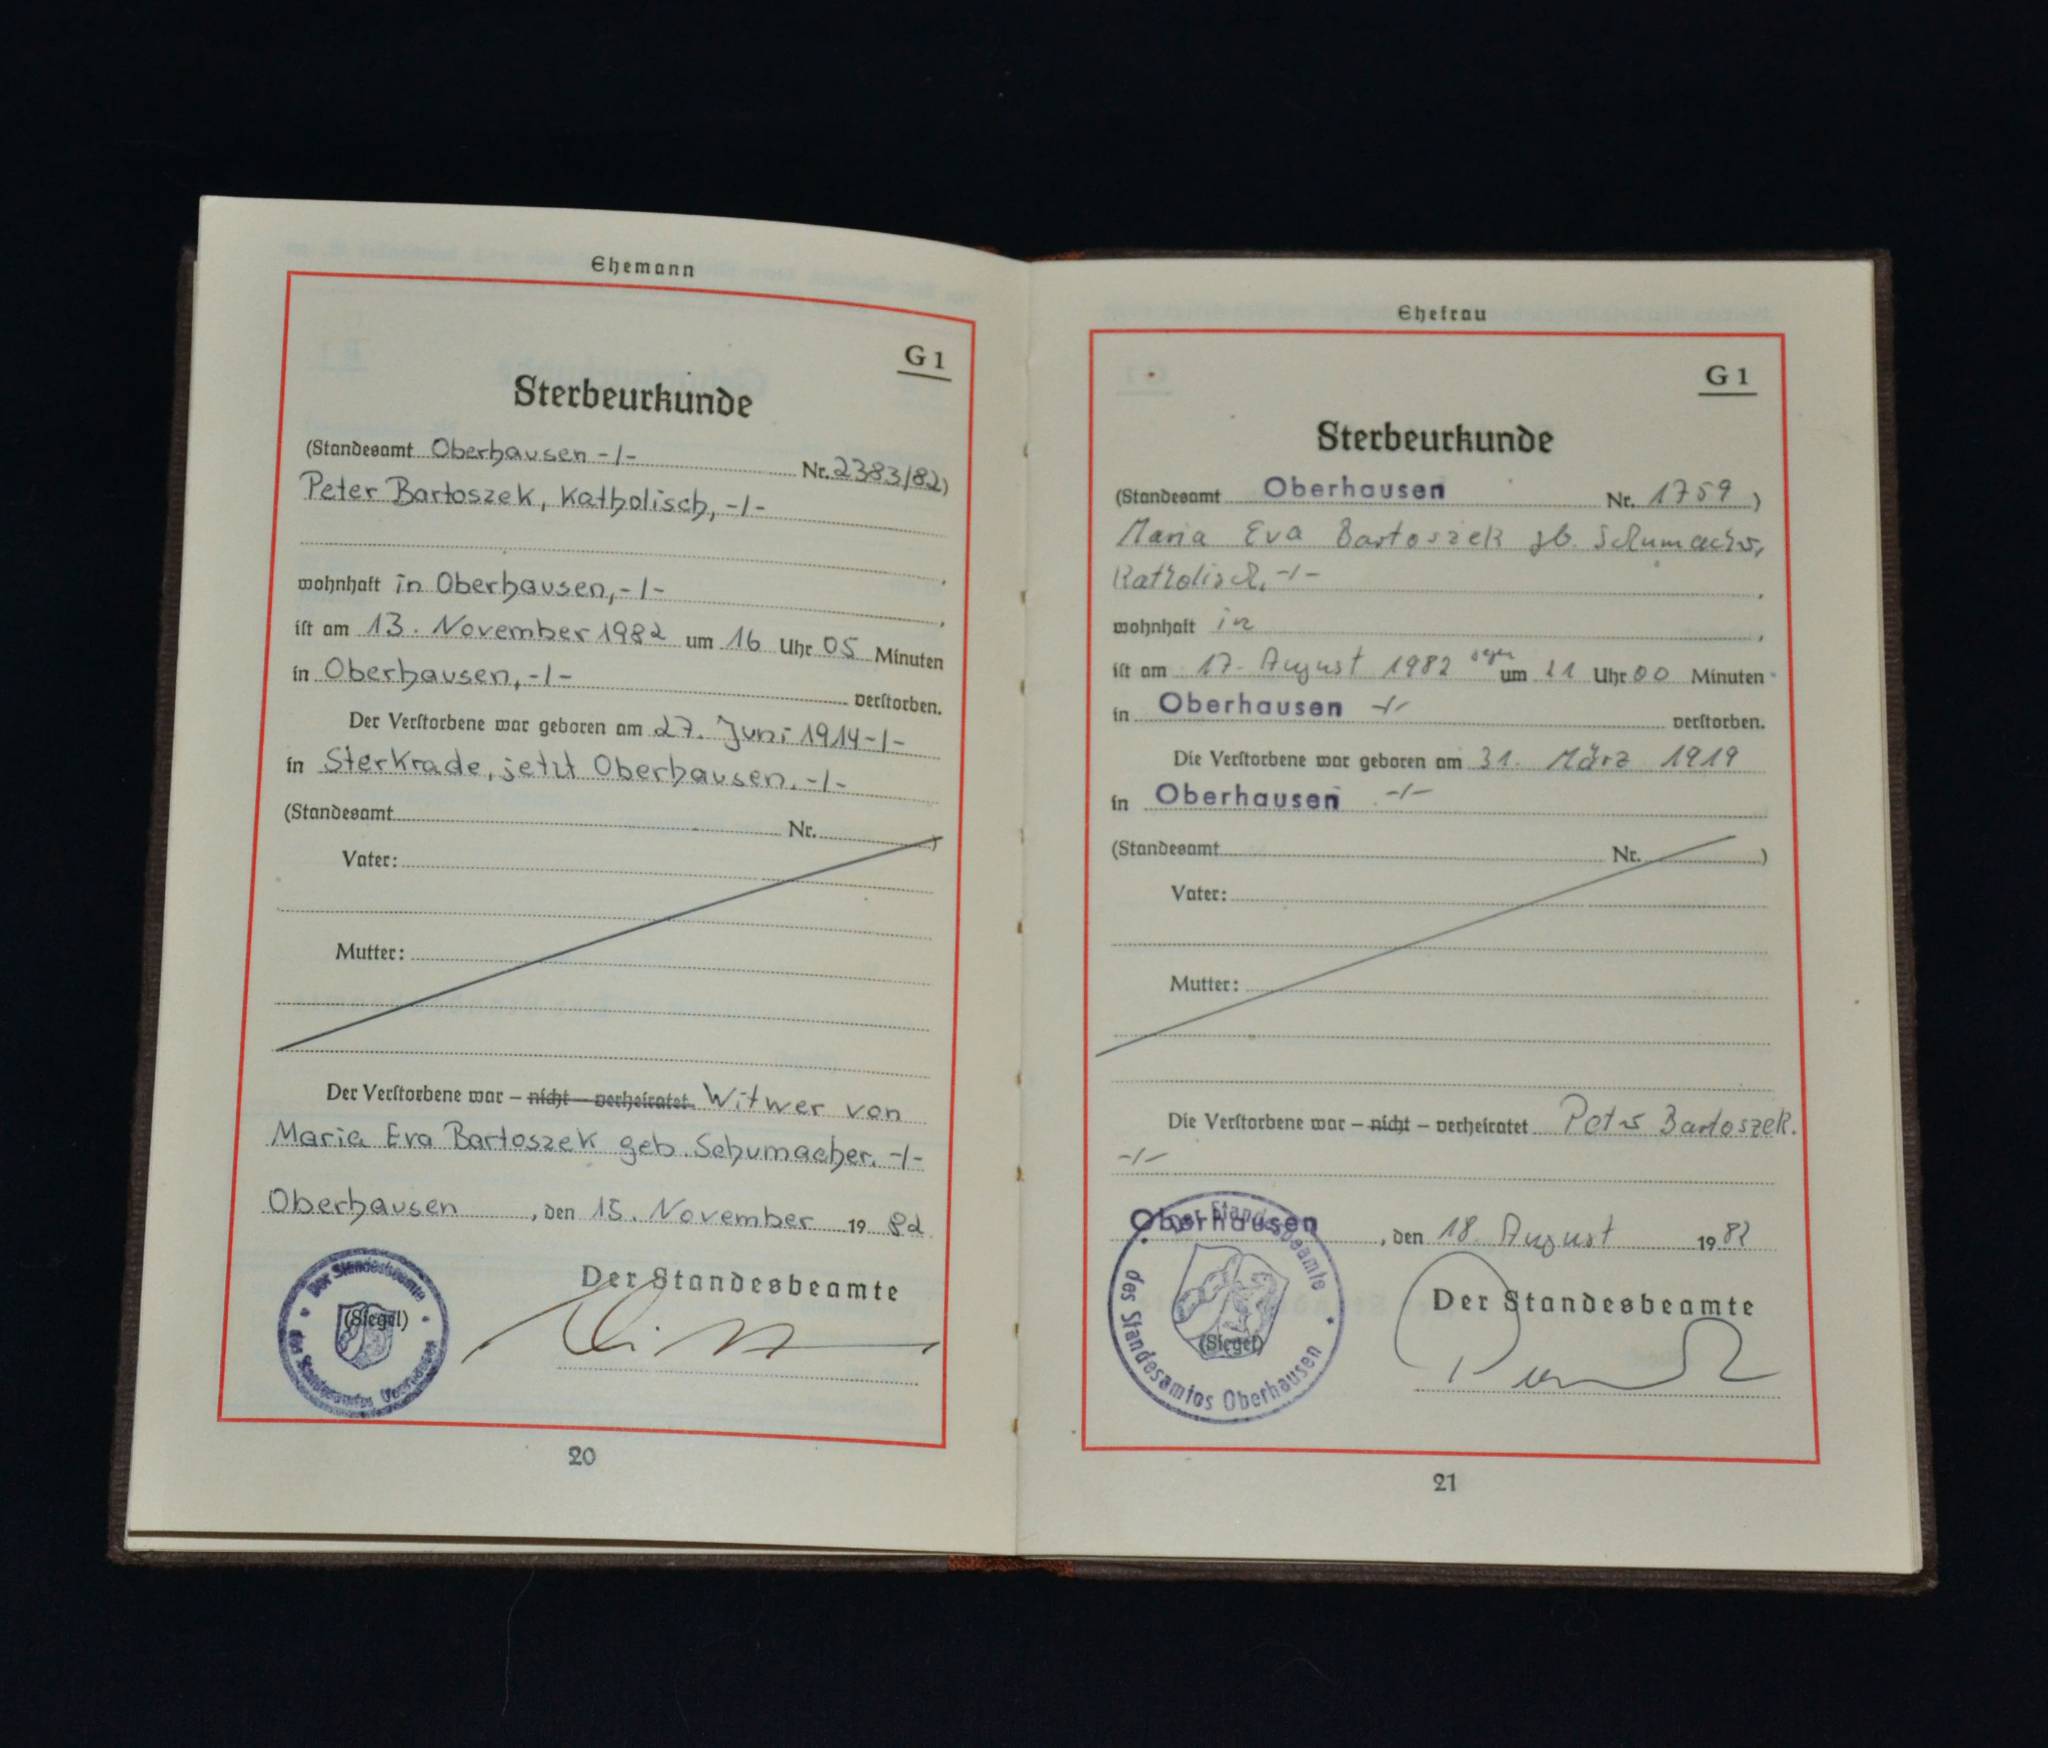 Ehemann
G 1
Sterbeurkunde
(Standesamt Oberhausen -/- Nr. 2383/82)
Peter Bartoszek, Katholisch, -/-
wohnhaft in Oberhausen, -/- ,
ist am 13. November 1982 um 16 Uhr 05 Minuten
in Oberhausen, -/- verstorben.
Der Verstorbene war geboren am 27. Juni 1914 -/-
in Sterkrade, jetzt Oberhausen. -/-
(Standesamt Nr. )
Vater:
Mutter:
Der Verstorbene war – nicht – verheiratet Witwer von
Maria Eva Bartoszek geb. Schumacher. -/-
Oberhausen , den 15. November 19 82
Der Standesbeamte
(Siegel)
Der Standesbeamte
des Standesamtes Oberhausen
20
Ehefrau
G 1
Sterbeurkunde
(Standesamt Oberhausen Nr. 1759 )
Maria Eva Bartoszek gb. Schumacher,
Katholisch, -/- ,
wohnhaft in ,
ist am 17. August 1982 gegen um 21 Uhr 00 Minuten
in Oberhausen -/- verstorben.
Die Verstorbene war geboren am 31. März 1919
in Oberhausen -/-
(Standesamt Nr. )
Vater:
Mutter:
Die Verstorbene war – nicht – verheiratet Peter Bartoszek.
-/-
Oberhausen , den 18. August 19 82
Der Standesbeamte
(Siegel)
Der Standesbeamte
des Standesamtes Oberhausen
21